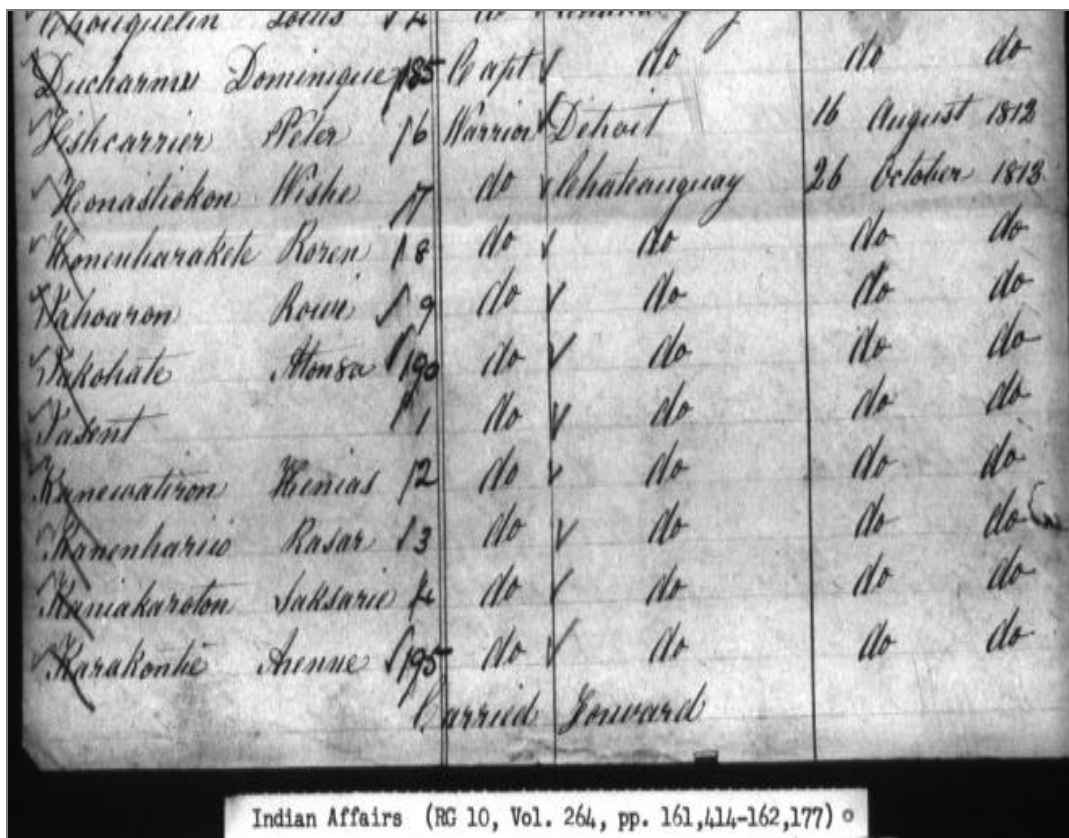 Chouquelin Louis 4 do
Ducharme Dominique 185 Capt do do do
Fishcarrier Peter 6 Warrior Detroit 16 August 1812
Honastiokon Wishe 7 do Chateauguay 26 October 1813
Honenharakete Roren 8 do do do do
Kahoaron Rowi 9 do do do do
Kakohate Atonsa 190 do do do do
Kasent 1 do do do do
Kanewatiron Henias 2 do do do do
Kanenhariio Rasar 3 do do do do
Kaniakaroton Saksarie 4 do do do do
Karakontie Arenne 195 do do do do
Carried Forward
Indian Affairs (RG 10, Vol. 264, pp. 161,414-162,177)